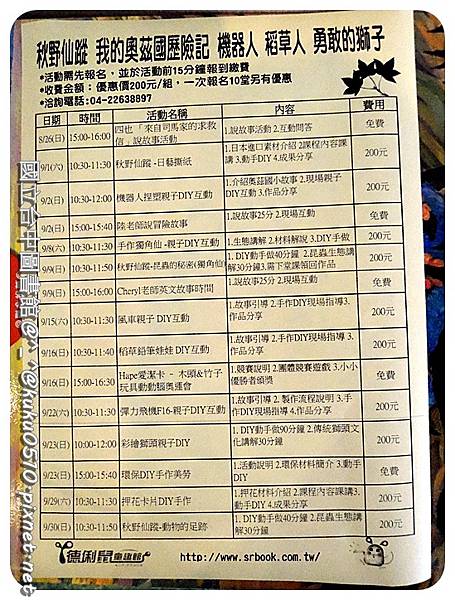 秋野仙蹤 我的奧茲國歷險記 機器人 稻草人 勇敢的獅子
•活動需先報名，並於活動前15分鐘報到繳費
•收費金額：優惠價200元/組，一次報名10堂另有優惠
•洽詢電話:04-22638897
日期 時間 活動名稱 內容 費用
8/26(日) 15:00-16:00 四也「來自司馬家的求救信」說故事活動 1.說故事活動 2.互動問答 免費
9/1(六) 10:30-11:30 秋野仙蹤-日藝撕紙 1.日本進口素材介紹 2.課程內容課講 3.動手DIY 4.成果分享 200元
9/2(日) 10:30-12:00 機器人捏塑親子DIY互動 1.介紹奧茲國小故事 2.現場親子DIY互動 3.作品分享 200元
9/2(日) 15:00-15:40 陸老師說冒險故事 1.說故事25分 2.現場互動 免費
9/8(六) 10:30-11:30 手作獨角仙-親子DIY互動 1.生態講解 2.材料解說 3.DIY手做 200元
9/9(日) 10:30-11:50 秋野仙蹤-昆蟲的秘密(獨角仙) 1.DIY動手做40分鐘 2.昆蟲生態講解30分鐘3.需下堂課領回作品 200元
9/9(日) 15:00-16:00 Cheryl老師英文故事時間 1.說故事25分 2.現場互動 免費
9/15(六) 10:30-11:30 風車親子 DIY互動 1.故事引導 2.手作DIY現場指導 3.作品分享 200元
9/16(日) 10:30-11:40 稻草鉛筆娃娃 DIY互動 1.故事引導 2.手作DIY現場指導 3.作品分享 200元
9/16(日) 15:00-16:30 Hape愛潔卡 - 木頭&竹子玩具動動腦奧運會 1.競賽說明 2.團體競賽遊戲 3.小小優勝者頒獎 免費
9/22(六) 10:30-11:30 彈力飛機F16-親子DIY互動 1.故事引導 2.製作流程說明 3.手作DIY現場指導 4.作品分享 200元
9/23(日) 10:00-12:00 彩繪獅頭親子DIY 1.DIY動手做90分鐘 2.傳統獅頭文化講解30分鐘 200元
9/23(日) 15:00-15:40 環保DIY手作美勞 1.活動說明 2.環保材料簡介 3.動手DIY 免費
9/29(六) 10:30-11:30 押花卡片DIY手作 1.押花材料介紹 2.課程內容課講3.動手DIY 4.成果分享 200元
9/30(日) 10:30-11:50 秋野仙蹤-動物的足跡 1.DIY動手做40分鐘 2.昆蟲生態講解30分鐘 200元
德俐鼠童書館
http://www.srbook.com.tw/